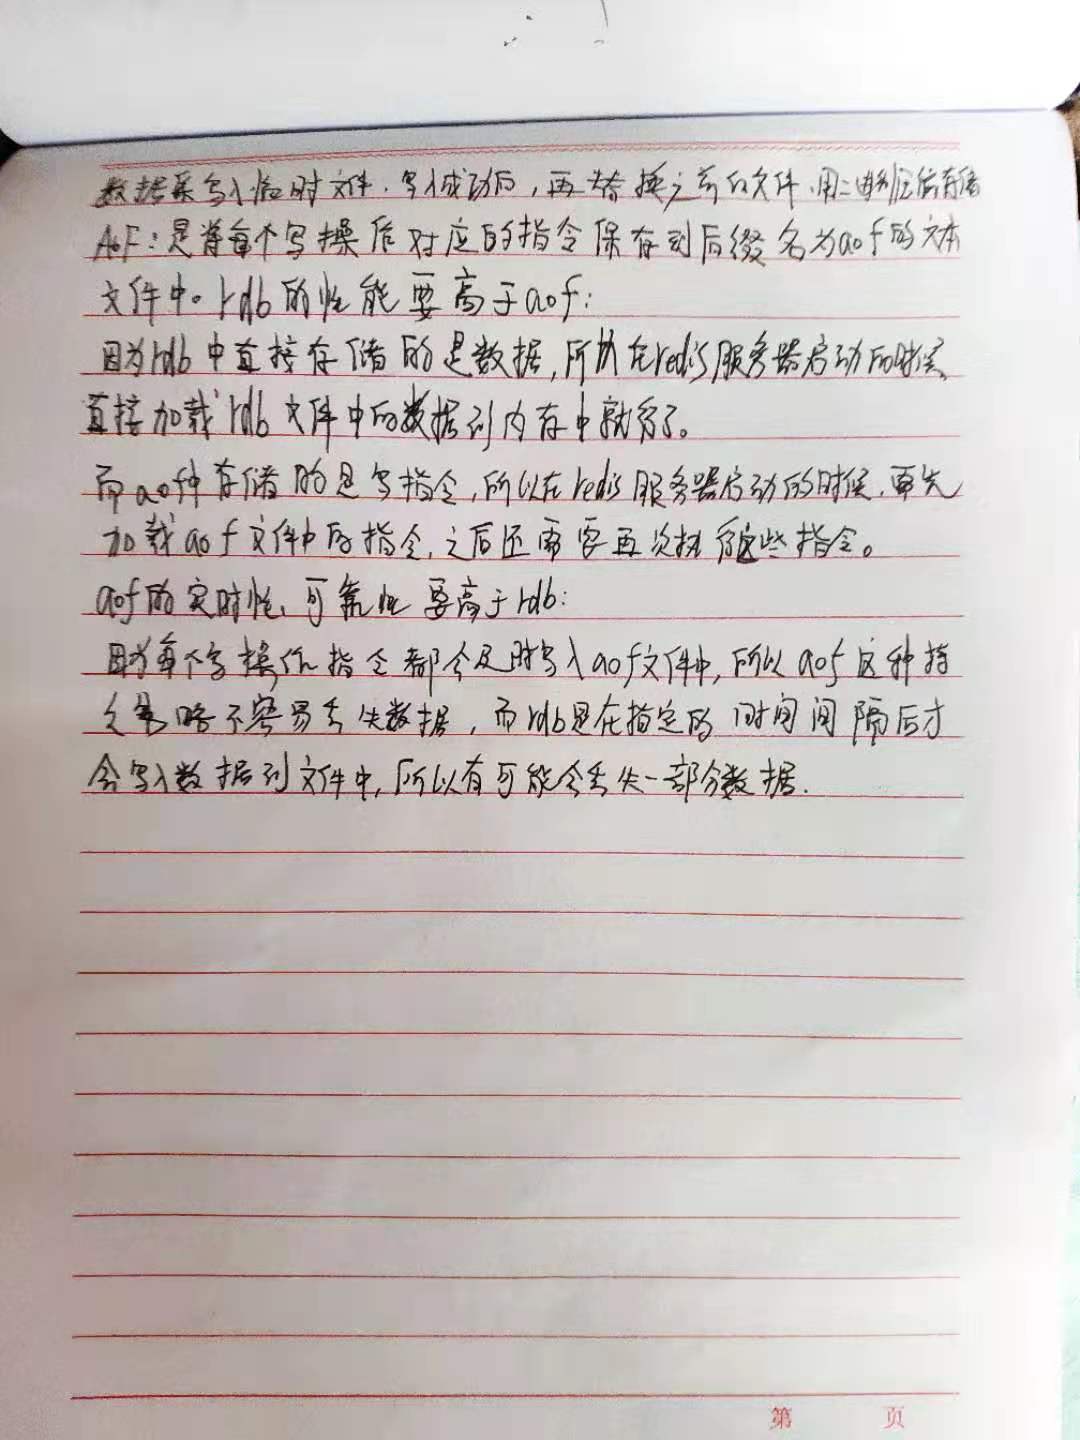 数据集写入临时文件，写入成功后，再替换之前的文件，用二进制压缩存储
AOF：是将每个写操作对应的指令保存到后缀名为aof的文本
文件中。rdb的性能要高于aof：
因为rdb中直接存储的是数据，所以在redis服务器启动的时候，
直接加载rdb文件中的数据到内存中就行了。
而aof中存储的是写指令，所以在redis服务器启动的时候，要先
加载aof文件中的指令，之后还需要再次执行这些指令。
aof的实时性、可靠性要高于rdb：
因为每个写操作指令都会及时写入aof文件中，所以aof这种持
久策略不容易丢失数据，而rdb是在指定的时间间隔后才
会写入数据到文件中，所以有可能会丢失一部分数据．
第 页